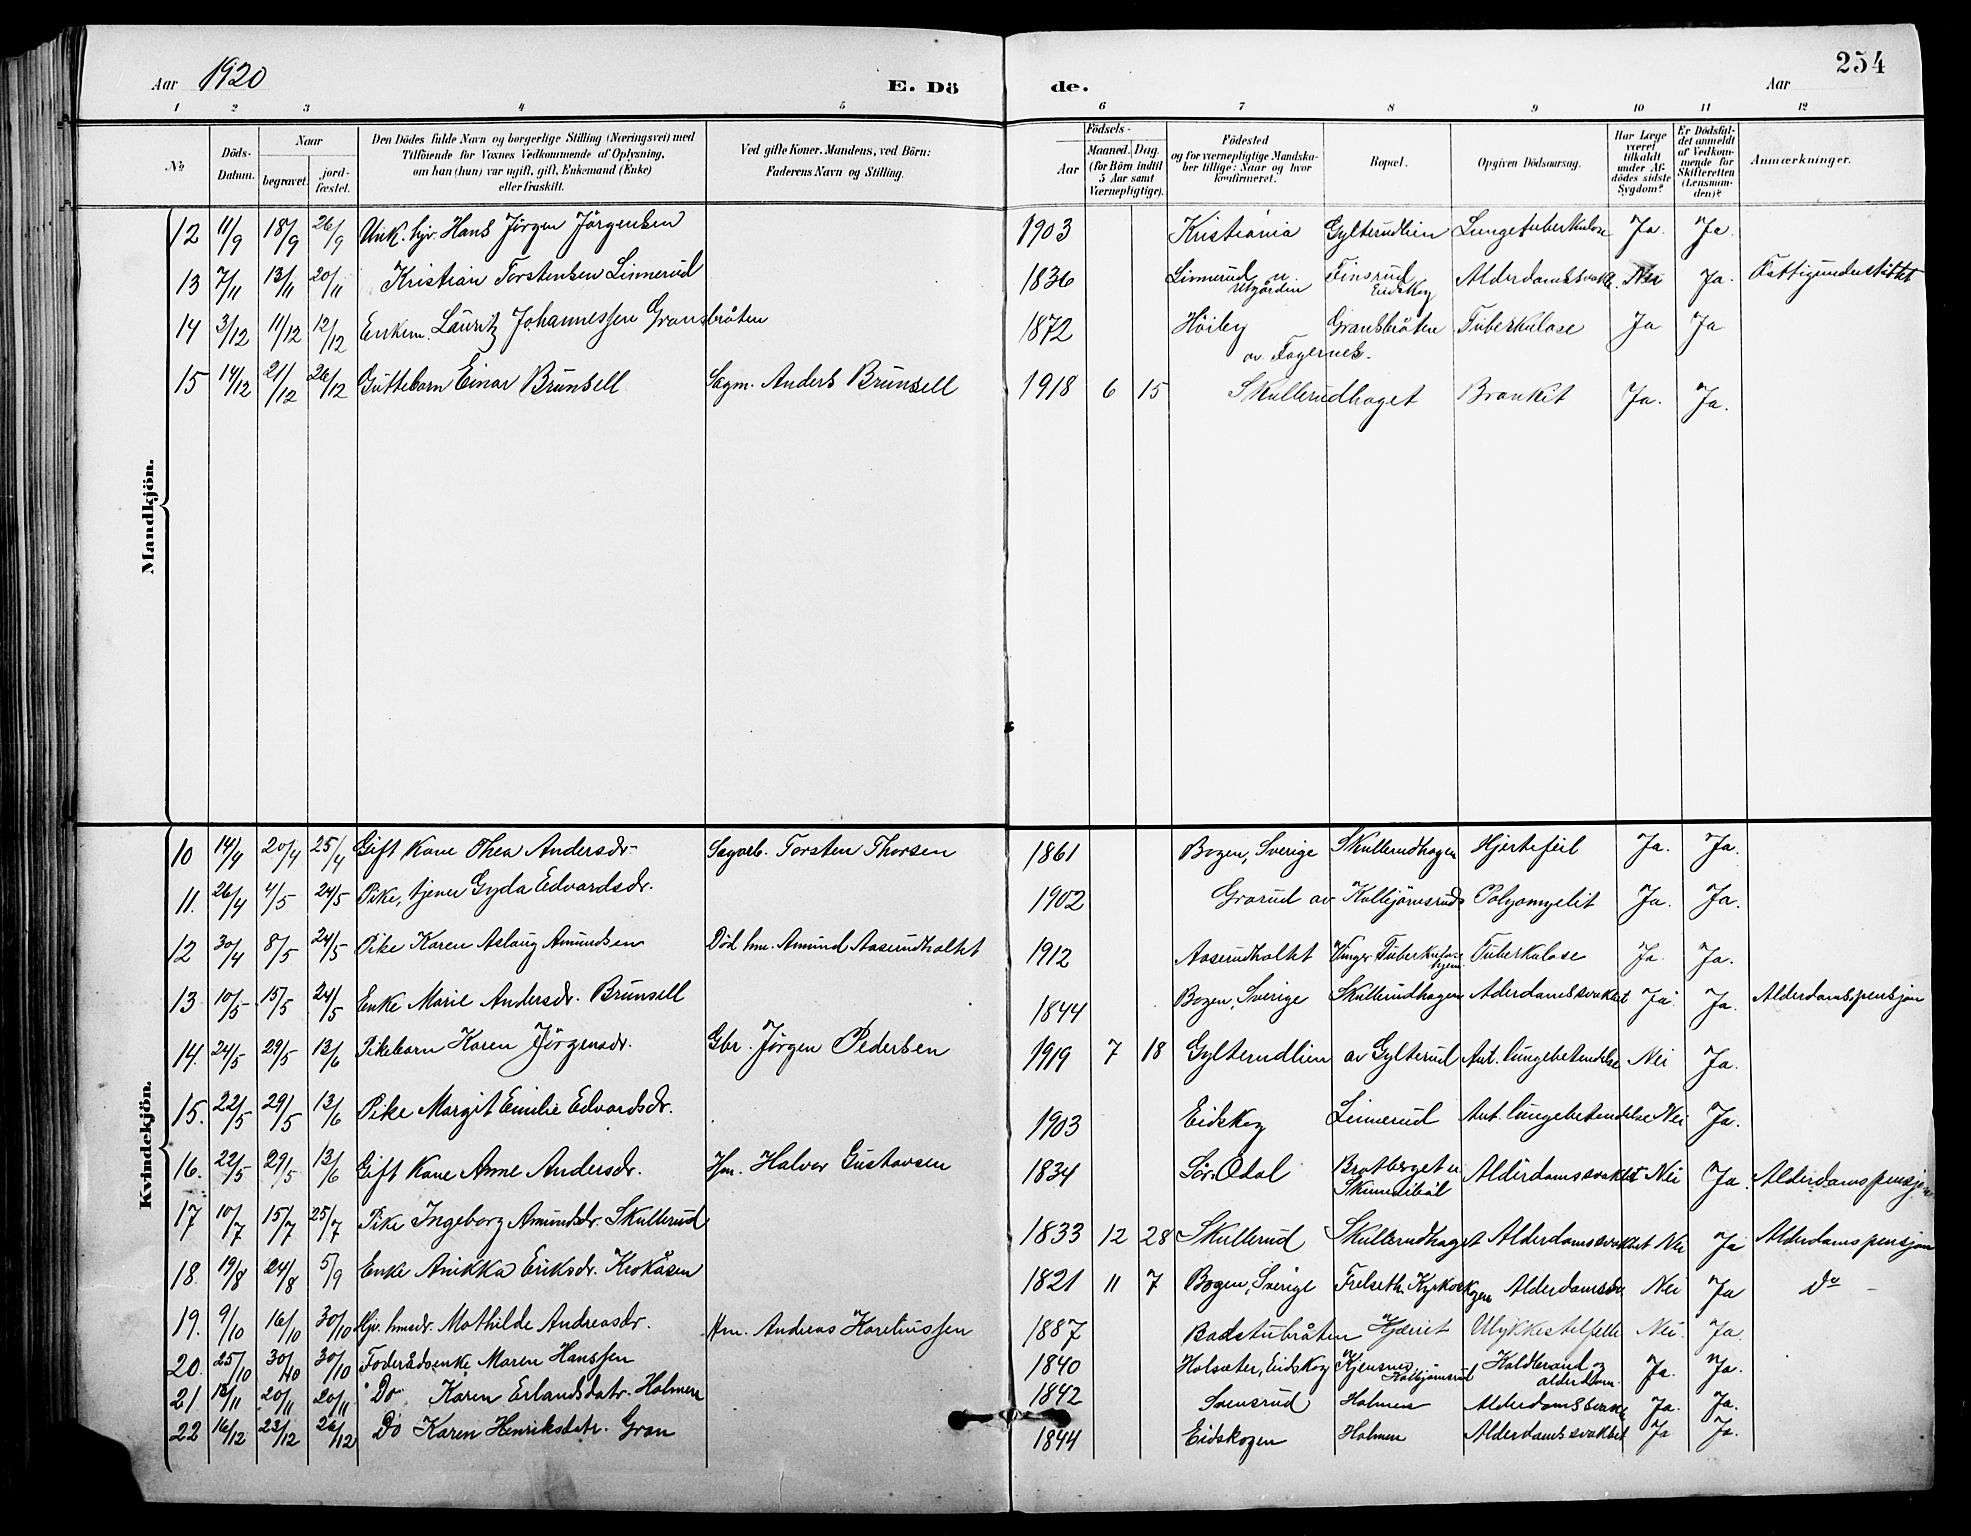 Aar 1920 E. Dö de. Aar 254
1 2 3 4 5 6 7 8 9 10 11 12
No
Döds-Datum.
Naar
begravet.
jord-fæstet.
Den Dödes fulde Navn og borgerlige Stilling (Næringsvei) med
Tilföiende for Voxnes Vedkommende af Oplysning,
om han (hun) var ugift, gift, Enkemand (Enke)
eller fraskilt.
Ved gifte Koner: Mandens, ved Börn:
Faderens Navn og Stilling.
Födsels-
Aar
Maaned. Dag.
(for Börn indtil
5 Aar samt
Værnepligtige).
Födested
og for værnepligtige Mandska-
ber tillige: Naar og hvor
konfirmeret.
Bopæl.
Opgiven Dödsaarsag.
Har Læge
været
tilkaldt
under Af-
dödes sidste
Sygdom?
Er Dödsfal-
det anmeldt
af Vedkom-
mende for
Skifteretten
(Lensman-
den)?
Anmærkninger.
Mandkjön.
12 11/9 18/9 26/9 Unk. hjv. Hans Jörgen Jörgensen 1903 Kristiania Gylterudlien Lungetuberkulose Ja. Ja.
13 7/11 13/11 20/11 Kristian Torstensen Linnerud 1836 Linnerud u. Utgården Finsrud Eidskog Alderdomssvakh. Nei Ja. Fattigunderstöttet
14 3/12 11/12 12/12 Enkem. Lauritz Johannessen Gransbråten 1872 Höiby av Fagernes. Gransbråten Tuberkulose Ja Ja
15 14/12 21/12 26/12 Guttebarn Einar Brunsell Sagm. Anders Brunsell 1918 6 15 Skullerudhaget Bronkit Ja. Ja.
Kvindekjön.
10 14/4 20/4 25/4 Gift Kone Thea Andersdr. Sagarb. Torsten Thorsen 1861 Bogen, Sverige Skullerudhagen Hjertefeil Ja. Ja.
11. 26/4 4/5 24/5 Pike, tjener Gyda Edvardsdr. 1902 Grorud av Kolbjörnsruds Polyomyelit Ja. Ja.
12 30/4 8/5 24/5 Pike Karen Aslaug Amundsen Död hm. Amund Aaserudholtet 1912 Aaserudholtet Vinger Tuberkulose hjem Tuberkulose Ja. Ja.
13 10/5 15/5 24/5 Enke Marie Andersdr. Brunsell 1844 Bogen, Sverige Skullerudhagen Aderdomssvakhet Ja. Ja. Alderdomspensjon
14. 24/5 29/5 13/6 Pikebarn Karen Jörgensdr. Gbr. Jörgen Pedersen 1919 7 18 Gylterudlien av Gylterud Ant. lungebetendelse Nei Ja.
15. 22/5 29/5 13/6 Pike Margit Emilie Edvardsdr. 1903 Eidskog Linnerud Ant. lungebetendelse Nei Ja.
16. 22/5 29/5 13/6 Gift Kone Anne Andersdr. Hm. Halvor Gustavsen 1834 Sör-Odal Bratberget u. Skinnediböl Alderdomssvakhet Nei Ja. Alderdomspensjon
17 10/7 15/7 25/7 Pike Ingeborg Amundsdr. Skullerud 1833 12 28 Skullerud Skullerudhaget Alderdomssvakhet Nei Ja Alderdomspensjon
18. 19/8 24/8 5/9 Enke Anikka Eriksdr. Krokåsen 1821 11 7 Bogen, Sverige Alderdomssv. Nei Ja Do
19. 9/10 16/10 30/10 Hjv. hmsdr. Mathilde Andreasdr. Hm. Andreas Koreliussen 1887 Badstubråten Kjæret Ulykkestilfelle Nei. Ja.
20. 25/10 30/10 30/10 Foderådsenke Maren Hanssen 1840 Holsæter, Eidskog Kjensnes Kolbjörnsrud Koldbrand og alderdom. Ja. Ja.
21. 12/11 20/11 20/11 Do Karen Erlandsdatr. Holmen 1842 Svensrud Holmen Alderdomssvakh. Ja. Ja.
22 16/12 23/12 26/12 Do Karen Henriksdatr. Gran 1844 Eidskogen Holmen Alderdomssvakhet Ja Ja.